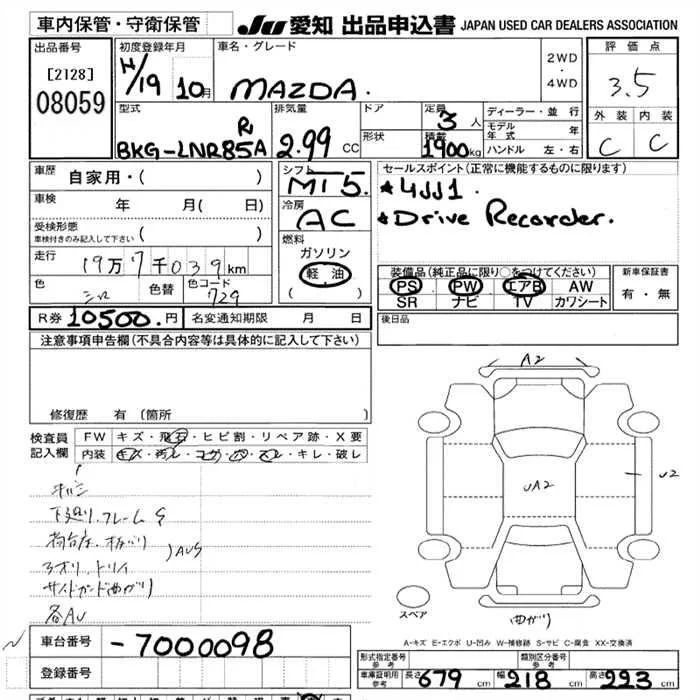 車内保管・守衛保管 JU 愛知 出品申込書 JAPAN USED CAR DEALERS ASSOCIATION
出品番号 初度登録年月 車名・グレード 2WD・4WD 評価点
[2128] 08059 H/19 10月 MAZDA. 3.5
型式 排気量 ドア 定員 3人 ディーラー・並行 外装 内装
BKG-LNR85A R 2.99 CC 形状 積載 1900kg モデル年式 年 C C
ハンドル 左・右
車歴 自家用・( ) シフト MT5. セールスポイント(正常に機能するものに限ります)
車検 年 月( 日) 冷房 AC *4JJ1.
受検形態 車検付きのみ記入して下さい ( ) *Drive Recorder.
走行 19万7千039km 燃料 ガソリン 軽油 ( )
装備品(純正品に限り○をつけてください) 新車保証書
色 シロ 色替 色コード 729 PS PW エアB AW 有・無
SR ナビ TV カワシート
R券 10500.円 名変通知期限 月 日 後日品
注意事項申告欄(不具合内容等は具体的に記入して下さい)
修復歴 有 (箇所
検査員記入欄 FW キズ・飛石・ヒビ割・リペア跡・X要
内装 キズ・汚レ・コゲ・穴・スレ・キレ・破レ
下廻り.フレームS
荷台
サイドガード曲がり
各AU
A2
UA2
U2
曲がり
スペア
A-キズ E-エクボ U-凹み W-補修跡 S-サビ C-腐食 XX-交換済
車台番号 -7000098
登録番号
形式指定番号 参考 類別区分番号 参考
車庫証明用 参考 長さ 679cm 幅 218cm 高さ 223cm